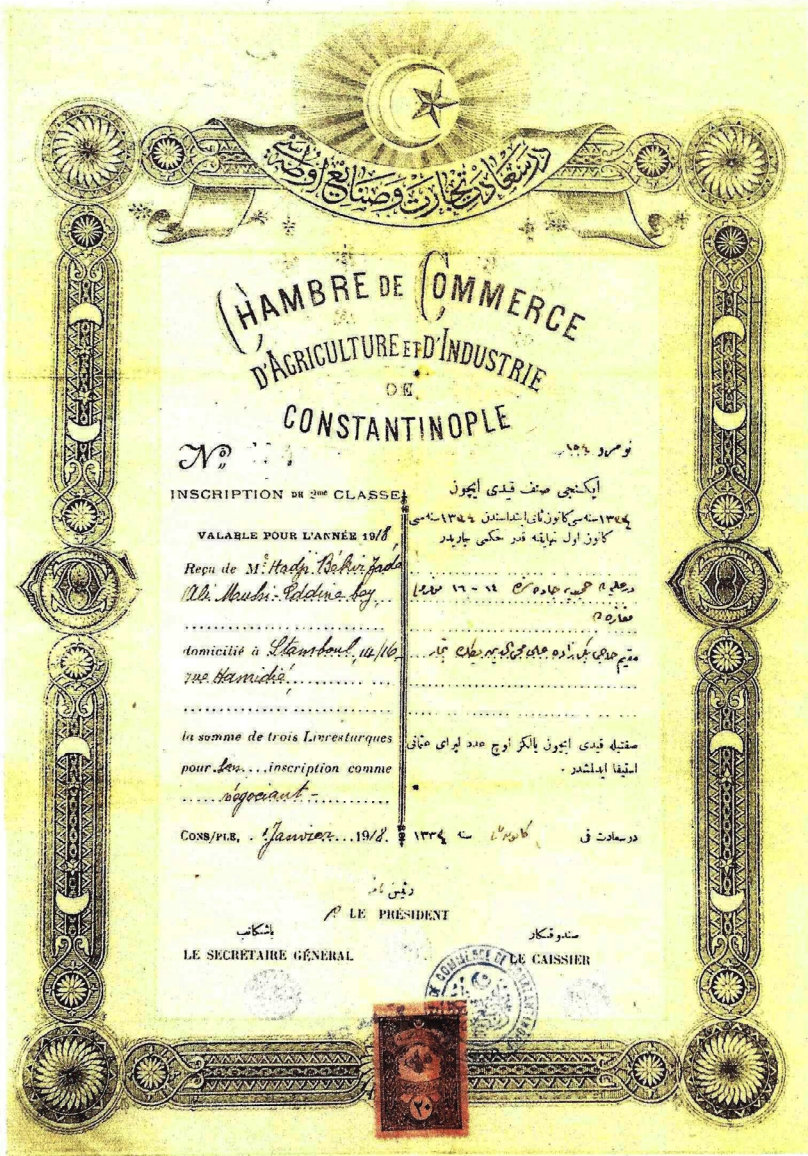 درسعادت تجارت وصنايع اوطه‌سی
CHAMBRE DE COMMERCE
D'AGRICULTURE ET D'INDUSTRIE
DE
CONSTANTINOPLE
Nº
INSCRIPTION DE 2me CLASSE
VALABLE POUR L'ANNÉE 1918
Reçu de Mr Hadji Békir Zadé
Ali Muhi-Eddine bey
domicilié à Stamboul, 14/16
rue Hamidié,
la somme de trois Livres turques
pour son inscription comme
négociant
CONS/PLE, 1 Janvier 1918.
نومرو
ايكنجی صنف قيدی ايچون
١٣٣٤ سنه‌سی كانون ثانی ابتداسندن ١٣٣٤ سنه‌سی
كانون اول نهايتنه قدر حكمی جاريدر
جاده ١٤ - ١٦
مغازه
مقيم حاجی بكر زاده علی محی الدين بك
صفتيله قيدی ايچون يالكز اوچ عدد ليرای عثمانی
استيفا ايدلمشدر .
درسعادت فی كانون سنه ١٣٣٤
رئيس
LE PRÉSIDENT
باشكاتب
LE SECRÉTAIRE GÉNÉRAL
صندوقكار
LE CAISSIER
COMMERCE DE
٢٠